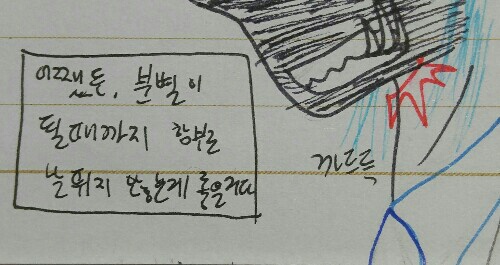 어쨌든, 분별이
될때까지 함부로
날뛰지 않는게 좋을거다
까드득